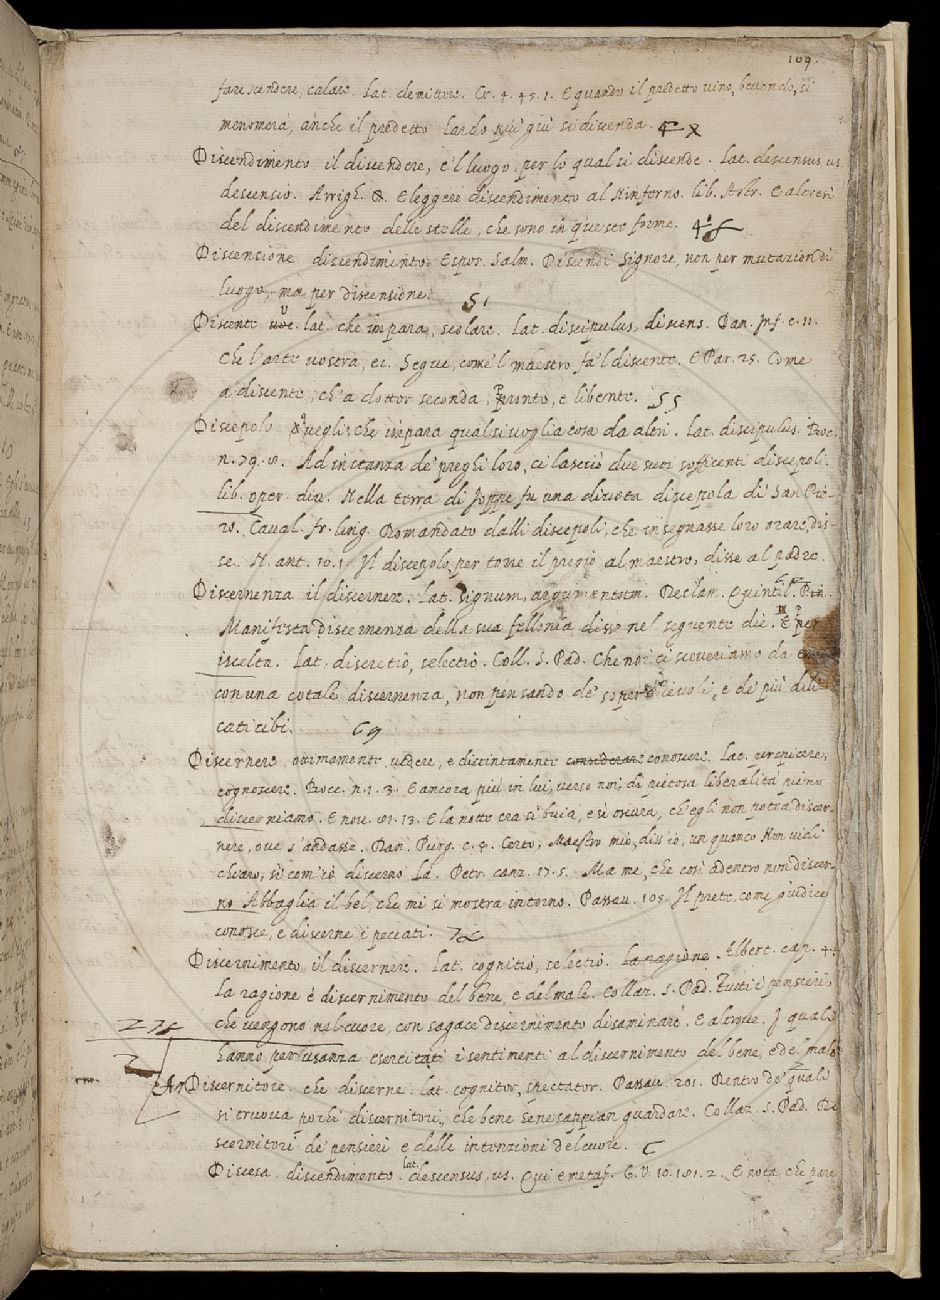 109.
fare scendere, calare. Lat. demittere. Cr. 4. 45. 1. E quando il predetto vino, bevendo, si
menomerà, anche il predetto lardo più giù si discenda.
Discendimento il discendere, e 'l luogo, per lo qual si discende. Lat. descensus us
descensio. Arrigh. &. Eleggere discendimento al Ninferno. lib. Astr. E altresì
del discendimento delle stelle, che sono in queste forme.
Discensione discendimento. Espor. Salm. Discendi Signore, non per mutazion di
luogo, ma per discensione.
51
Discente voc. lat. che impara, scolare. Lat. discipulus, discens. Dan. Inf. c. 11.
Che l'arte vostra, ec. Segue, come 'l maestro fa 'l discente. E Par. 25. Come
a discente, ch' a dottor seconda, Pronto, e libente. 55
Discepolo Quegli, che impara qualsivoglia cosa da altri. Lat. discipulus. Bocc.
n. 79. 8. Ad instanza de' preghi loro, ci lasciò due suoi sofficenti discepoli.
lib. oper. div. Nella terra di Joppe fu una divota discepola di San Pie-
ro. Caval. fr. ling. Domandato dalli discepoli, che insegnasse loro orare, dis-
se. N. ant. 10. 1. Il discepolo, per torre il pregio al maestro, disse al padre.
Discernenza il discernere. Lat. signum, argumentum. Declam. Quintil.
Manifesta discernenza della sua fellonia disse nel seguente die. E per
iscelta. Lat. discretio, selectio. Coll. S. Pad. Che noi ci sceveriamo da
con una cotale discernenza, non pensando de' soperchievoli, e de' più dili
cati cibi. 69
Discernere ottimamente vedere, e distintamente considerare conoscere. Lat. perspicere,
cognoscere. Bocc. n. 1. 3. E ancora più in lui, verso noi, di pietosa liberalità pieno
discerniamo. E nov. 01. 13. E la notte era sì buia, e sì oscura, ch' egli non potea discer-
nere, ove s' andasse. Dan. Purg. c. 4. Certo, Maestro mio, diss' io, un quanco Non vidi
chiaro, sì com' io discerno Là. Petr. canz. 17. 5. Ma me, che così adentro non discer-
no Abbaglia il bel, che mi si mostra intorno. Passav. 105. Il prete, come giudice
conosce, e discerne i peccati.
Discernimento il discernere. Lat. cognitio, selectio. La ragione. Albert. cap. 44
La ragione è discernimento del bene, e del male. Collaz. S. Pad. Tutti i pensieri,
che vengono nel cuore, con sagace discernimento disaminare. E altrove. I quali
hanno per usanza esercitati i sentimenti al discernimento del bene, e del male
Discernitore che discerne. Lat. cognitor, spectator. Passav. 201. Dentro de' quali
si truova pochi discernitori, che bene sene sappian guardare. Collaz. S. Pad. Di
scernitori de' pensieri e delle intenzioni del cuore.
Discesa discendimento. lat. descensus, us. Qui è metaf. G. V. 10. 181. 2. E nota che pare